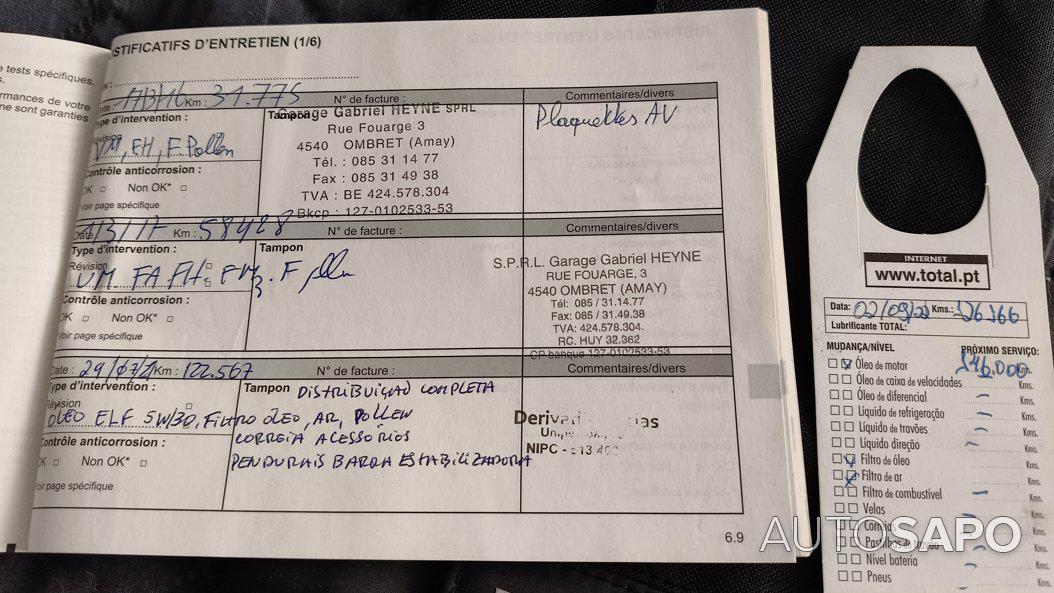 e tests spécifiques.
s.
rmances de votre
ne sont garanties
STIFICATIFS D'ENTRETIEN (1/6)
Date : Km : 31.775
N° de facture :
Commentaires/divers
Révision
VM, FH, F Pollen
Contrôle anticorrosion :
OK □ Non OK* □
Voir page spécifique
Tampon
Garage Gabriel HEYNE SPRL
Rue Fouarge 3
4540 OMBRET (Amay)
Tél. : 085 31 14 77
Fax : 085 31 49 38
TVA : BE 424.578.304
Bkcp : 127-0102533-53
Plaquettes AV
Date 1/3/17 Km : 58428
N° de facture :
Commentaires/divers
Type d'intervention :
Révision
VM FA FH.
Contrôle anticorrosion :
OK □ Non OK* □
Voir page spécifique
Tampon
F
S.P.R.L. Garage Gabriel HEYNE
RUE FOUARGE, 3
4540 OMBRET (AMAY)
Tél: 085 / 31.14.77
Fax: 085 / 31.49.38
TVA: 424.578.304.
RC. HUY 32.362
CP banque 127-0102533-53
Date : 29/07/21 Km : 122.567
N° de facture :
Commentaires/divers
Type d'intervention :
Révision
ÓLEO ELF 5W/30, FILTRO ÓLEO, AR, POLLEN
Contrôle anticorrosion :
OK □ Non OK* □
Voir page spécifique
Tampon
DISTRIBUIÇÃO COMPLETA
CORREIA ACESSÓRIOS
PENDURAIS BARRA ESTABILIZADORA
NIPC -
6.9
INTERNET
www.total.pt
Data: 02/09/22 Kms.: 126166
Lubrificante TOTAL:
MUDANÇA/NÍVEL PRÓXIMO SERVIÇO:
Óleo de motor Kms.
Óleo de caixa de velocidades - Kms.
Óleo de diferencial - Kms.
Líquido de refrigeração - Kms.
Líquido de travões - Kms.
Líquido direção - Kms.
Filtro de óleo Kms.
Filtro de ar Kms.
Filtro de combustível - Kms.
Velas - Kms.
Correias - Kms.
Pastilhas de travão - Kms.
Nível bateria - Kms.
Pneus - Kms.
AUTOSAPO